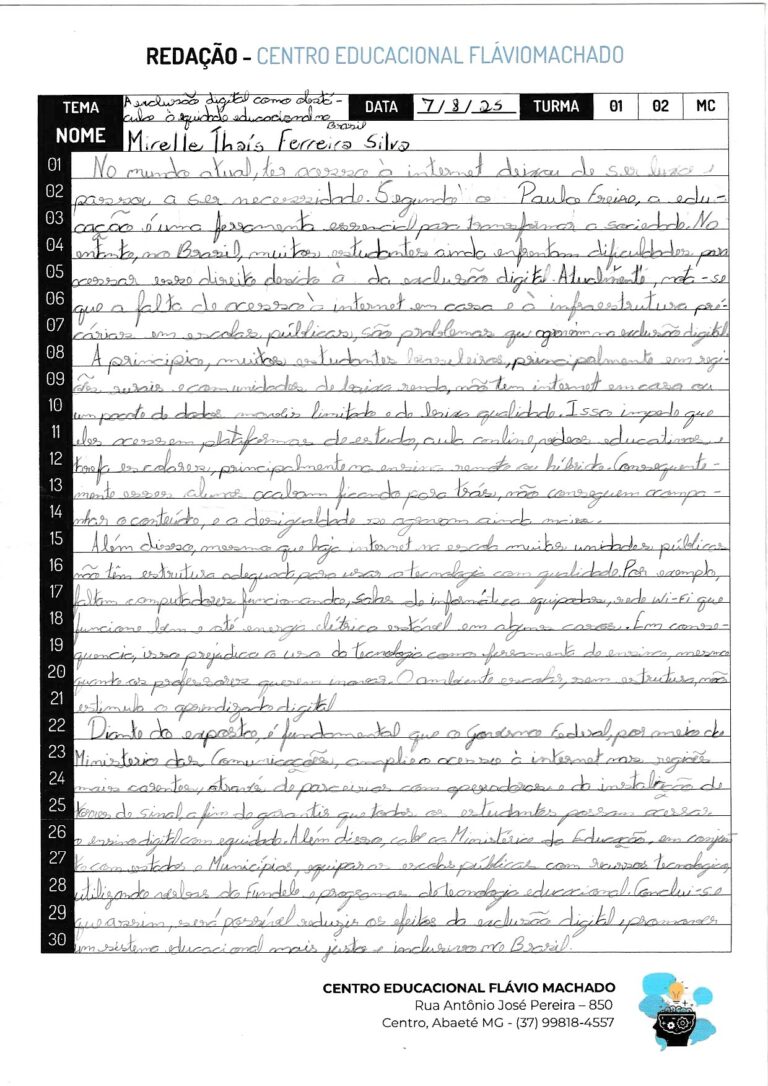 REDAÇÃO - CENTRO EDUCACIONAL FLÁVIOMACHADO
TEMA A exclusão digital como obstá-
culo à equidade educacional no
Brasil
DATA 7/8/25 TURMA 01 02 MC
NOME Mirelle Thaís Ferreira Silva
01 No mundo atual, ter acesso à internet deixou de ser luxo e
02 passou a ser necessidade. Segundo o Paulo Freire, a edu-
03 cação é uma ferramenta essencial para transformar a sociedade. No
04 entanto, no Brasil, muitos estudantes ainda enfrentam dificuldades para
05 acessar esse direito devido à da exclusão digital. Atualmente, nota-se
06 que a falta de acesso à internet em casa e à infraestrutura pre-
07 cárias em escolas públicas, são problemas que agravam na exclusão digital
08 A princípio, muitos estudantes brasileiros, principalmente em regi-
09 ões rurais e comunidades de baixa renda, não tem internet em casa ou
10 um pacote de dados moveis limitado e de baixa qualidade. Isso impede que
11 eles acessem plataformas de estudo, aula online, videos educativos e
12 tarefa escolares, principalmente no ensino remoto ou híbrido. Consequente-
13 mente esses alunos acabam ficando para trás, não conseguem acompa-
14 nhar o conteúdo, e a desigualdade se agravam ainda mais.
15 Além disso, mesmo que haja internet na escola muitas unidades públicas
16 não têm estrutura adequada para usar a tecnologia com qualidade. Por exemplo,
17 faltam computadores funcionando, salas de informática equipadas, rede Wi-Fi que
18 funcione bem e até energia elétrica estável em alguns casos. Em conse-
19 quencia, isso prejudica o uso da tecnologia como ferramenta de ensino, mesmo
20 quanto os professores querem inovar. O ambiente escolar, sem estrutura, não
21 estimula o aprendizado digital
22 Diante do exposto, é fundamental que o Governo Federal, por meio do
23 Ministerio das Comunicações, amplie o acesso à internet nas regiões
24 mais carentes, através de parcerias com operadoras e da instalação de
25 torres de sinal, a fim de garantir que todos os estudantes possam acessar
26 o ensino digital com equidade. Além disso, cabe ao Ministério da Educação, em conjun
27 to com estados e Municípios, equipar as escolas públicas com recursos tecnologicos,
28 utilizando verbas do Fundeb e programas de tecnologia educacional. Conclui-se
29 que assim, será possível reduzir os efeitos da exclusão digital e promover
30 um sistema educacional mais justo e inclusivo no Brasil.
CENTRO EDUCACIONAL FLÁVIO MACHADO
Rua Antônio José Pereira – 850
Centro, Abaeté MG - (37) 99818-4557